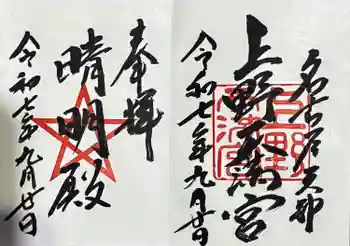 名古屋
上野天満宮
令和七年九月廿日
上野天満宮
奉拝
晴明殿
令和七年九月廿日